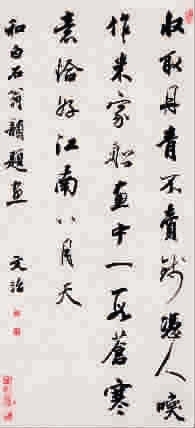 收取丹青不賣錢憑人喚
作米家船畫中一段蒼寒
意恰好江南八月天
和白石翁韻題畫
文治